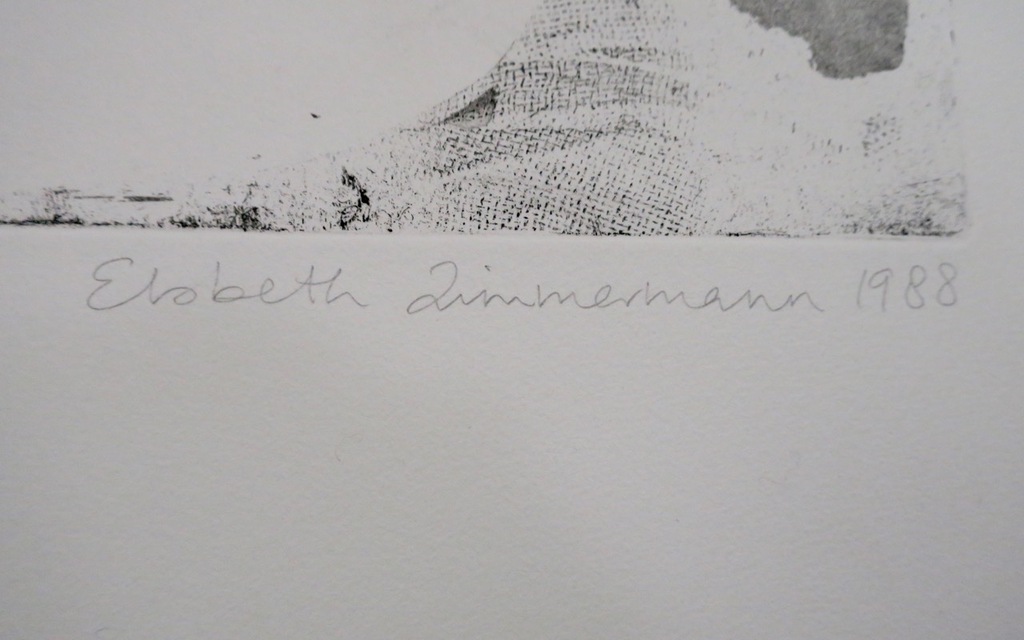 Elsbeth Zimmermann 1988